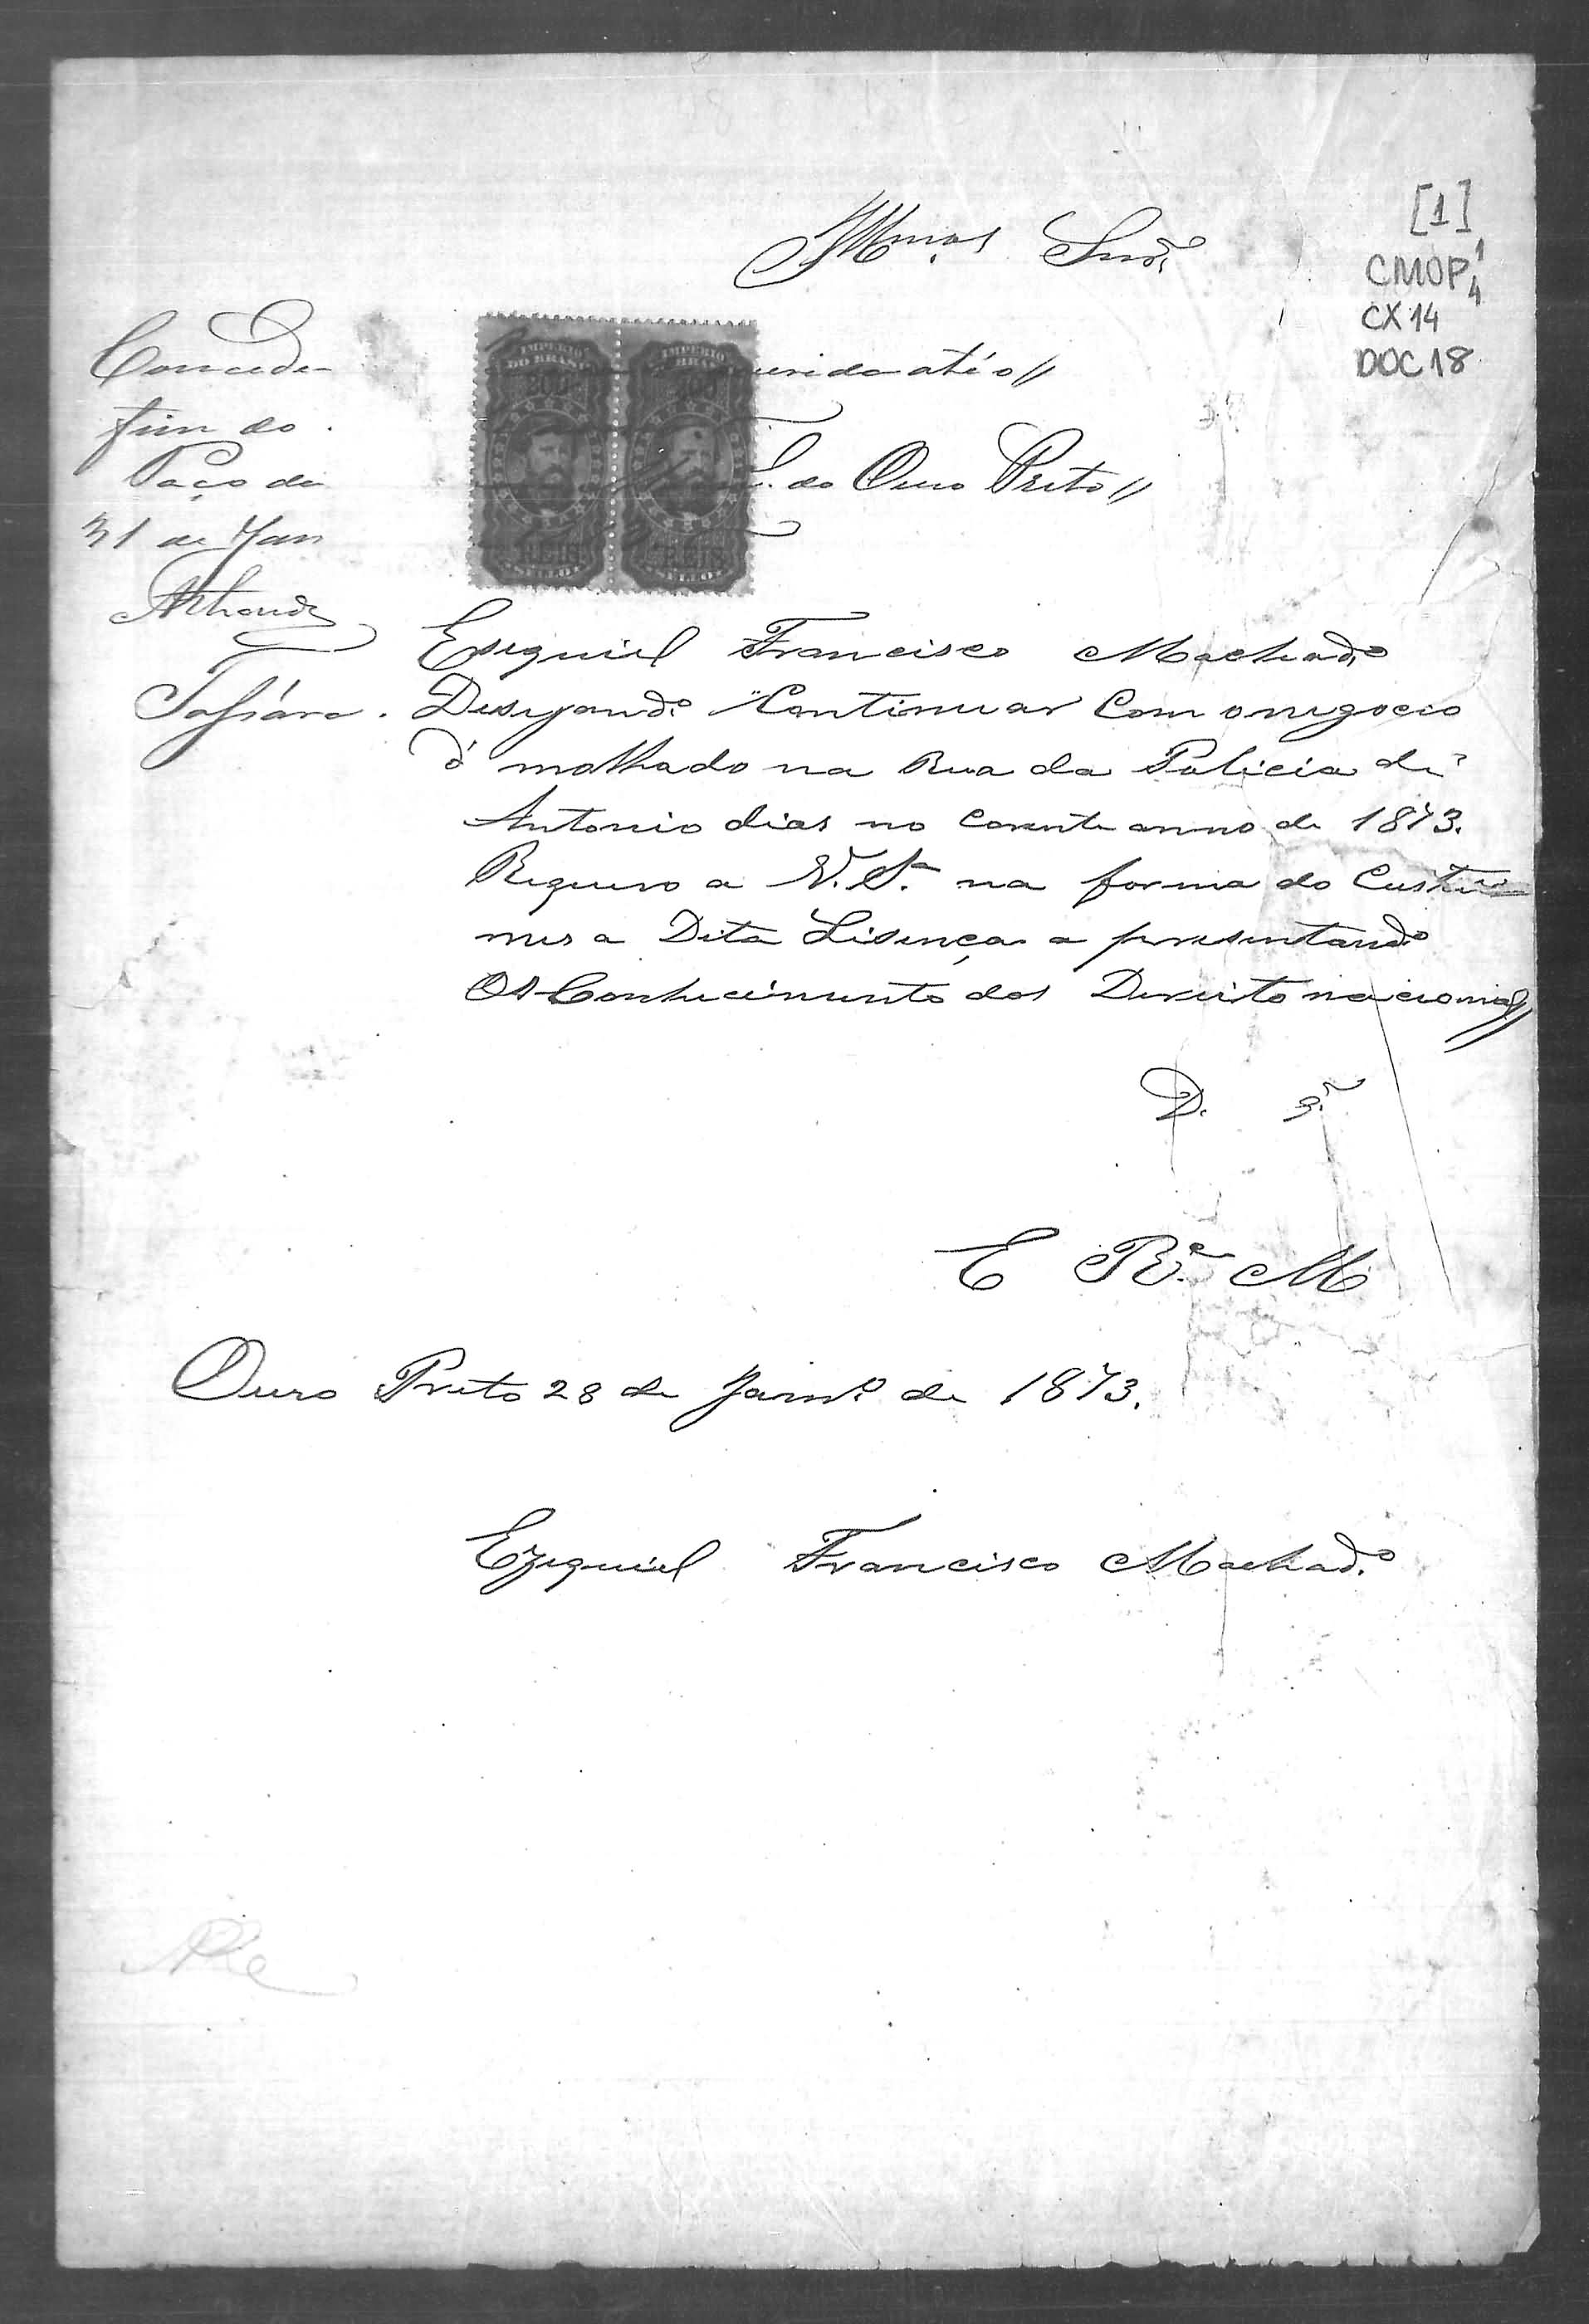 Illmos Snrs
[1]
CMOP 1/4
CX 14
DOC 18
Concede
erida até o //
fim do
Paço da
do Ouro Preto //
31 de Jan
IMPERIO DO BRASIL
200
REIS
SELLO
IMPERIO
BRASIL
REIS
SELLO
Esequiel Francisco Machado
Desejando Continuar Com o negocio
d' molhado na Rua da Policia de
Antonio dias no Corente anno de 1873.
Requero a V. Sª na forma do Custu
mes a Dita Lisença a presentando
Os Conhecimento dos Dereito nacional //
D.
E R.e M
Ouro Preto 28 de Janro de 1873.
Ezequiel Francisco Machado